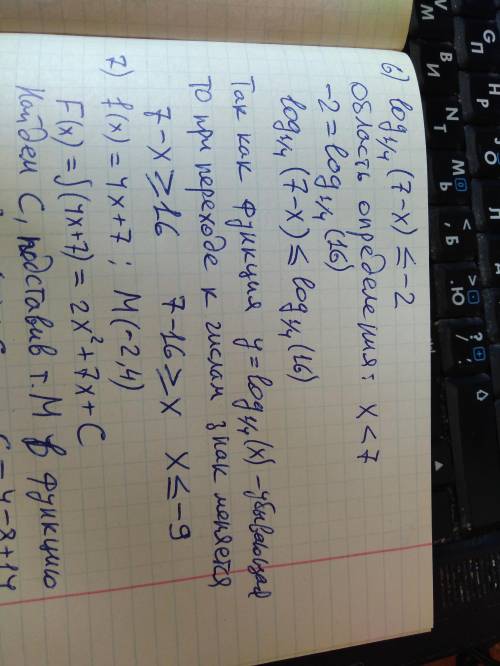 6) log₁/₄ (7-x) ≤ -2
Область определения: x < 7
-2 = log₁/₄ (16)
log₁/₄ (7-x) ≤ log₁/₄ (16)
Так как функция y = log₁/₄(x) - убывающая
то при переходе к числам знак меняется
7-x ≥ 16 7-16 ≥ x x ≤ -9
7) f(x) = 4x+7; M(-2,4)
F(x) = ∫(4x+7) = 2x²+7x+C
Найдем C, подставив т. M в функцию
C = 4-8+14